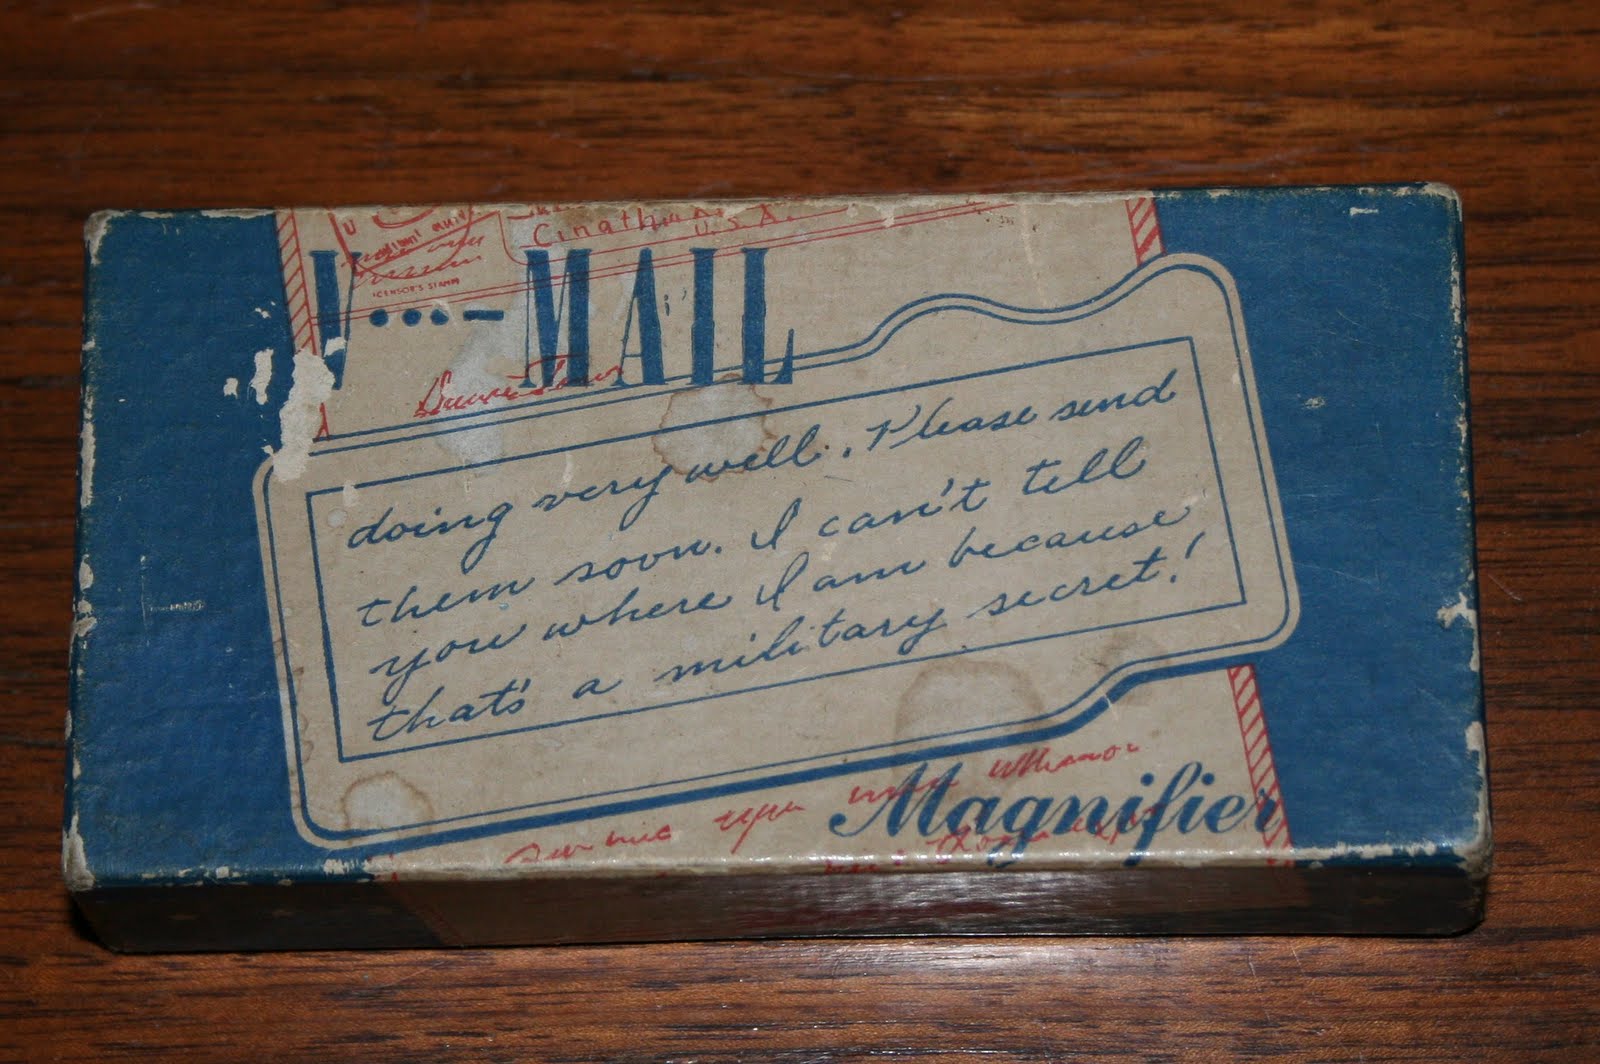 Cinathi U.S.A.
CENSOR'S STAMP
V ...- MAIL
doing very well. Please send
them soon. I can't tell
you where I am because
that's a military secret!
Magnifier